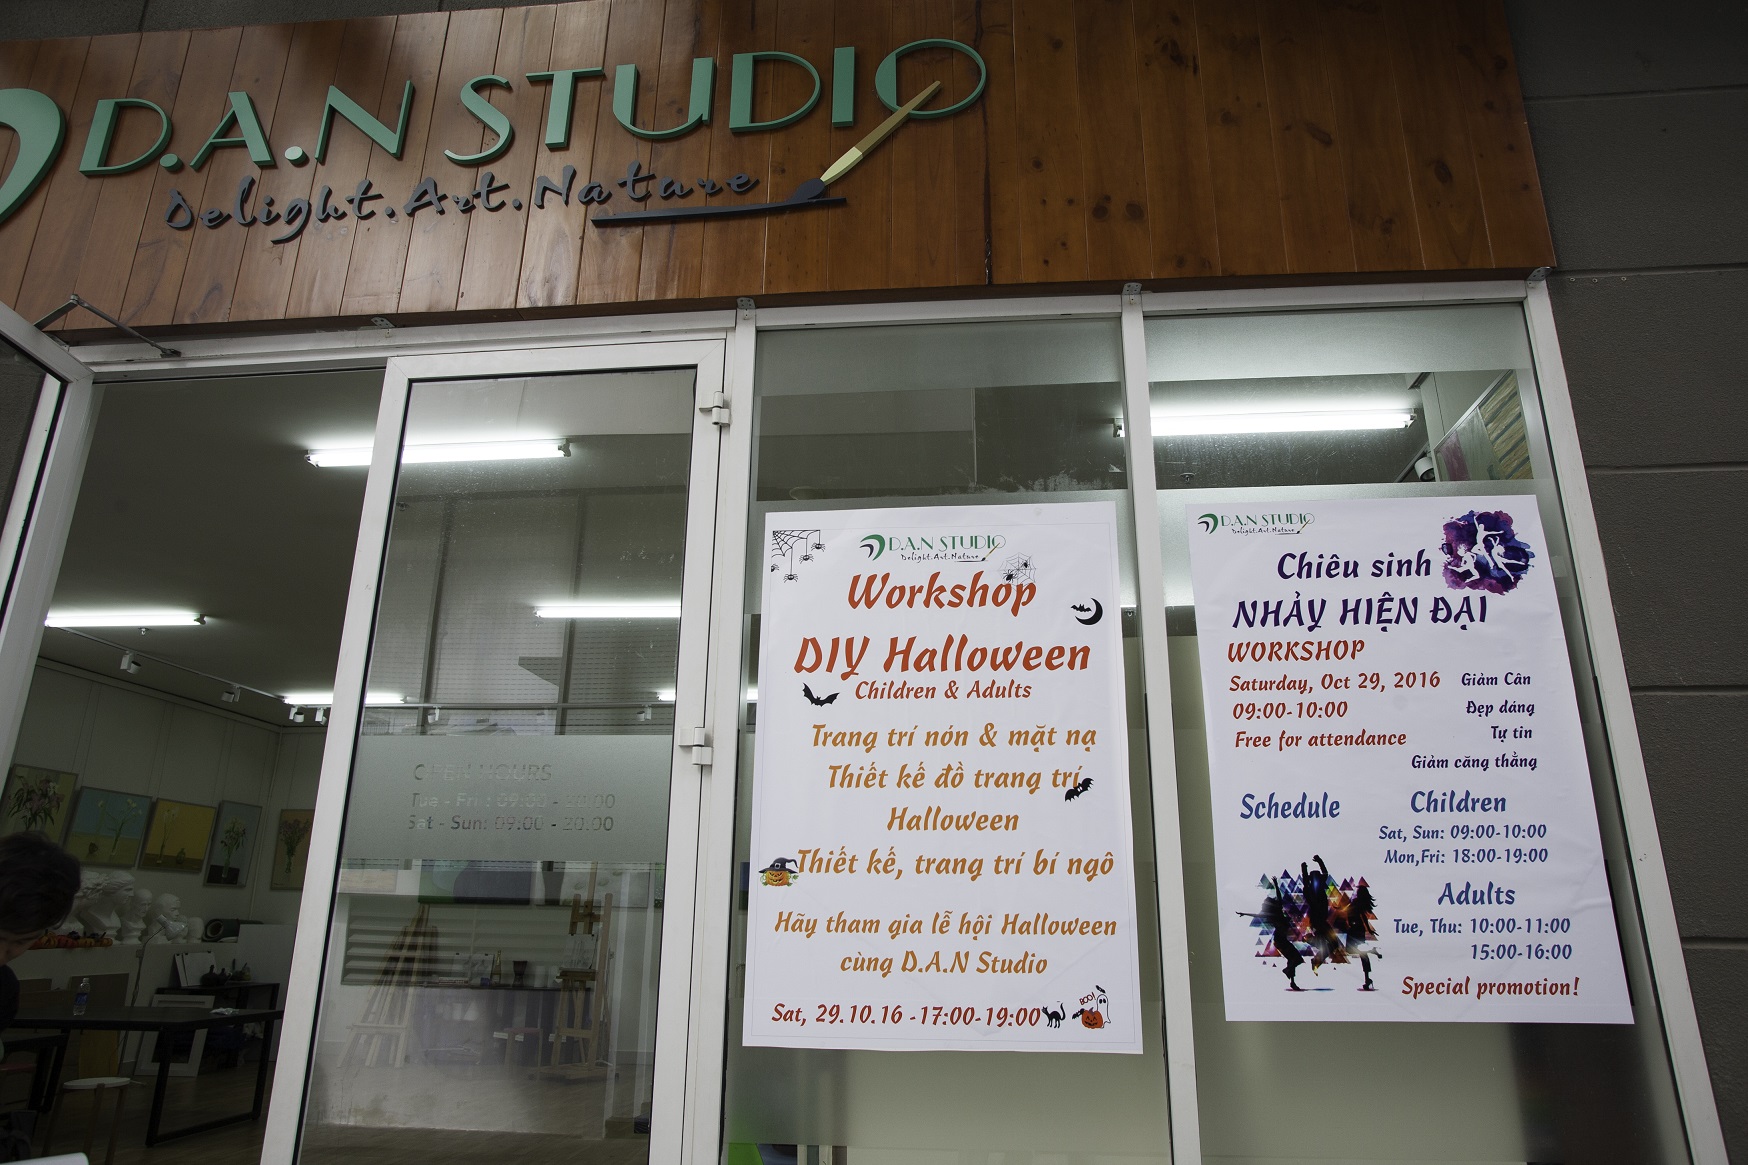 D.A.N STUDIO
Delight.Art.Nature
OPEN HOURS
Tue - Fri: 09:00 - 20.00
Sat - Sun: 09:00 - 20.00
D.A.N STUDIO
Delight.Art.Nature
Workshop
DIY Halloween
Children & Adults
Trang trí nón & mặt nạ
Thiết kế đồ trang trí
Halloween
Thiết kế, trang trí bí ngô
Hãy tham gia lễ hội Halloween
cùng D.A.N Studio
BOO!
Sat, 29.10.16 -17:00-19:00
D.A.N STUDIO
Delight.Art.Nature
Chiêu sinh
NHẢY HIỆN ĐẠI
WORKSHOP
Saturday, Oct 29, 2016
09:00-10:00
Free for attendance
Giảm Cân
Đẹp dáng
Tự tin
Giảm căng thẳng
Schedule
Children
Sat, Sun: 09:00-10:00
Mon,Fri: 18:00-19:00
Adults
Tue, Thu: 10:00-11:00
15:00-16:00
Special promotion!